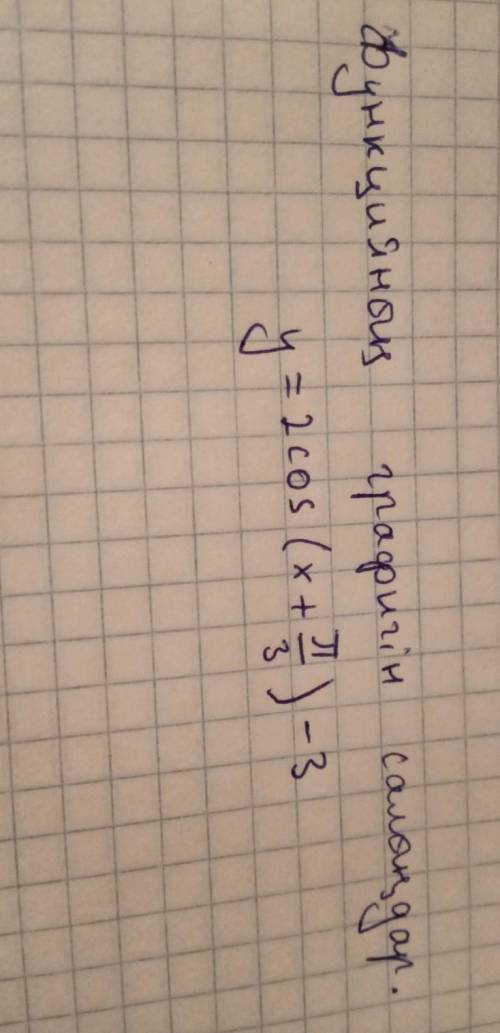 Функцияның графигін салыңдар.
y = 2cos(x + π/3) - 3